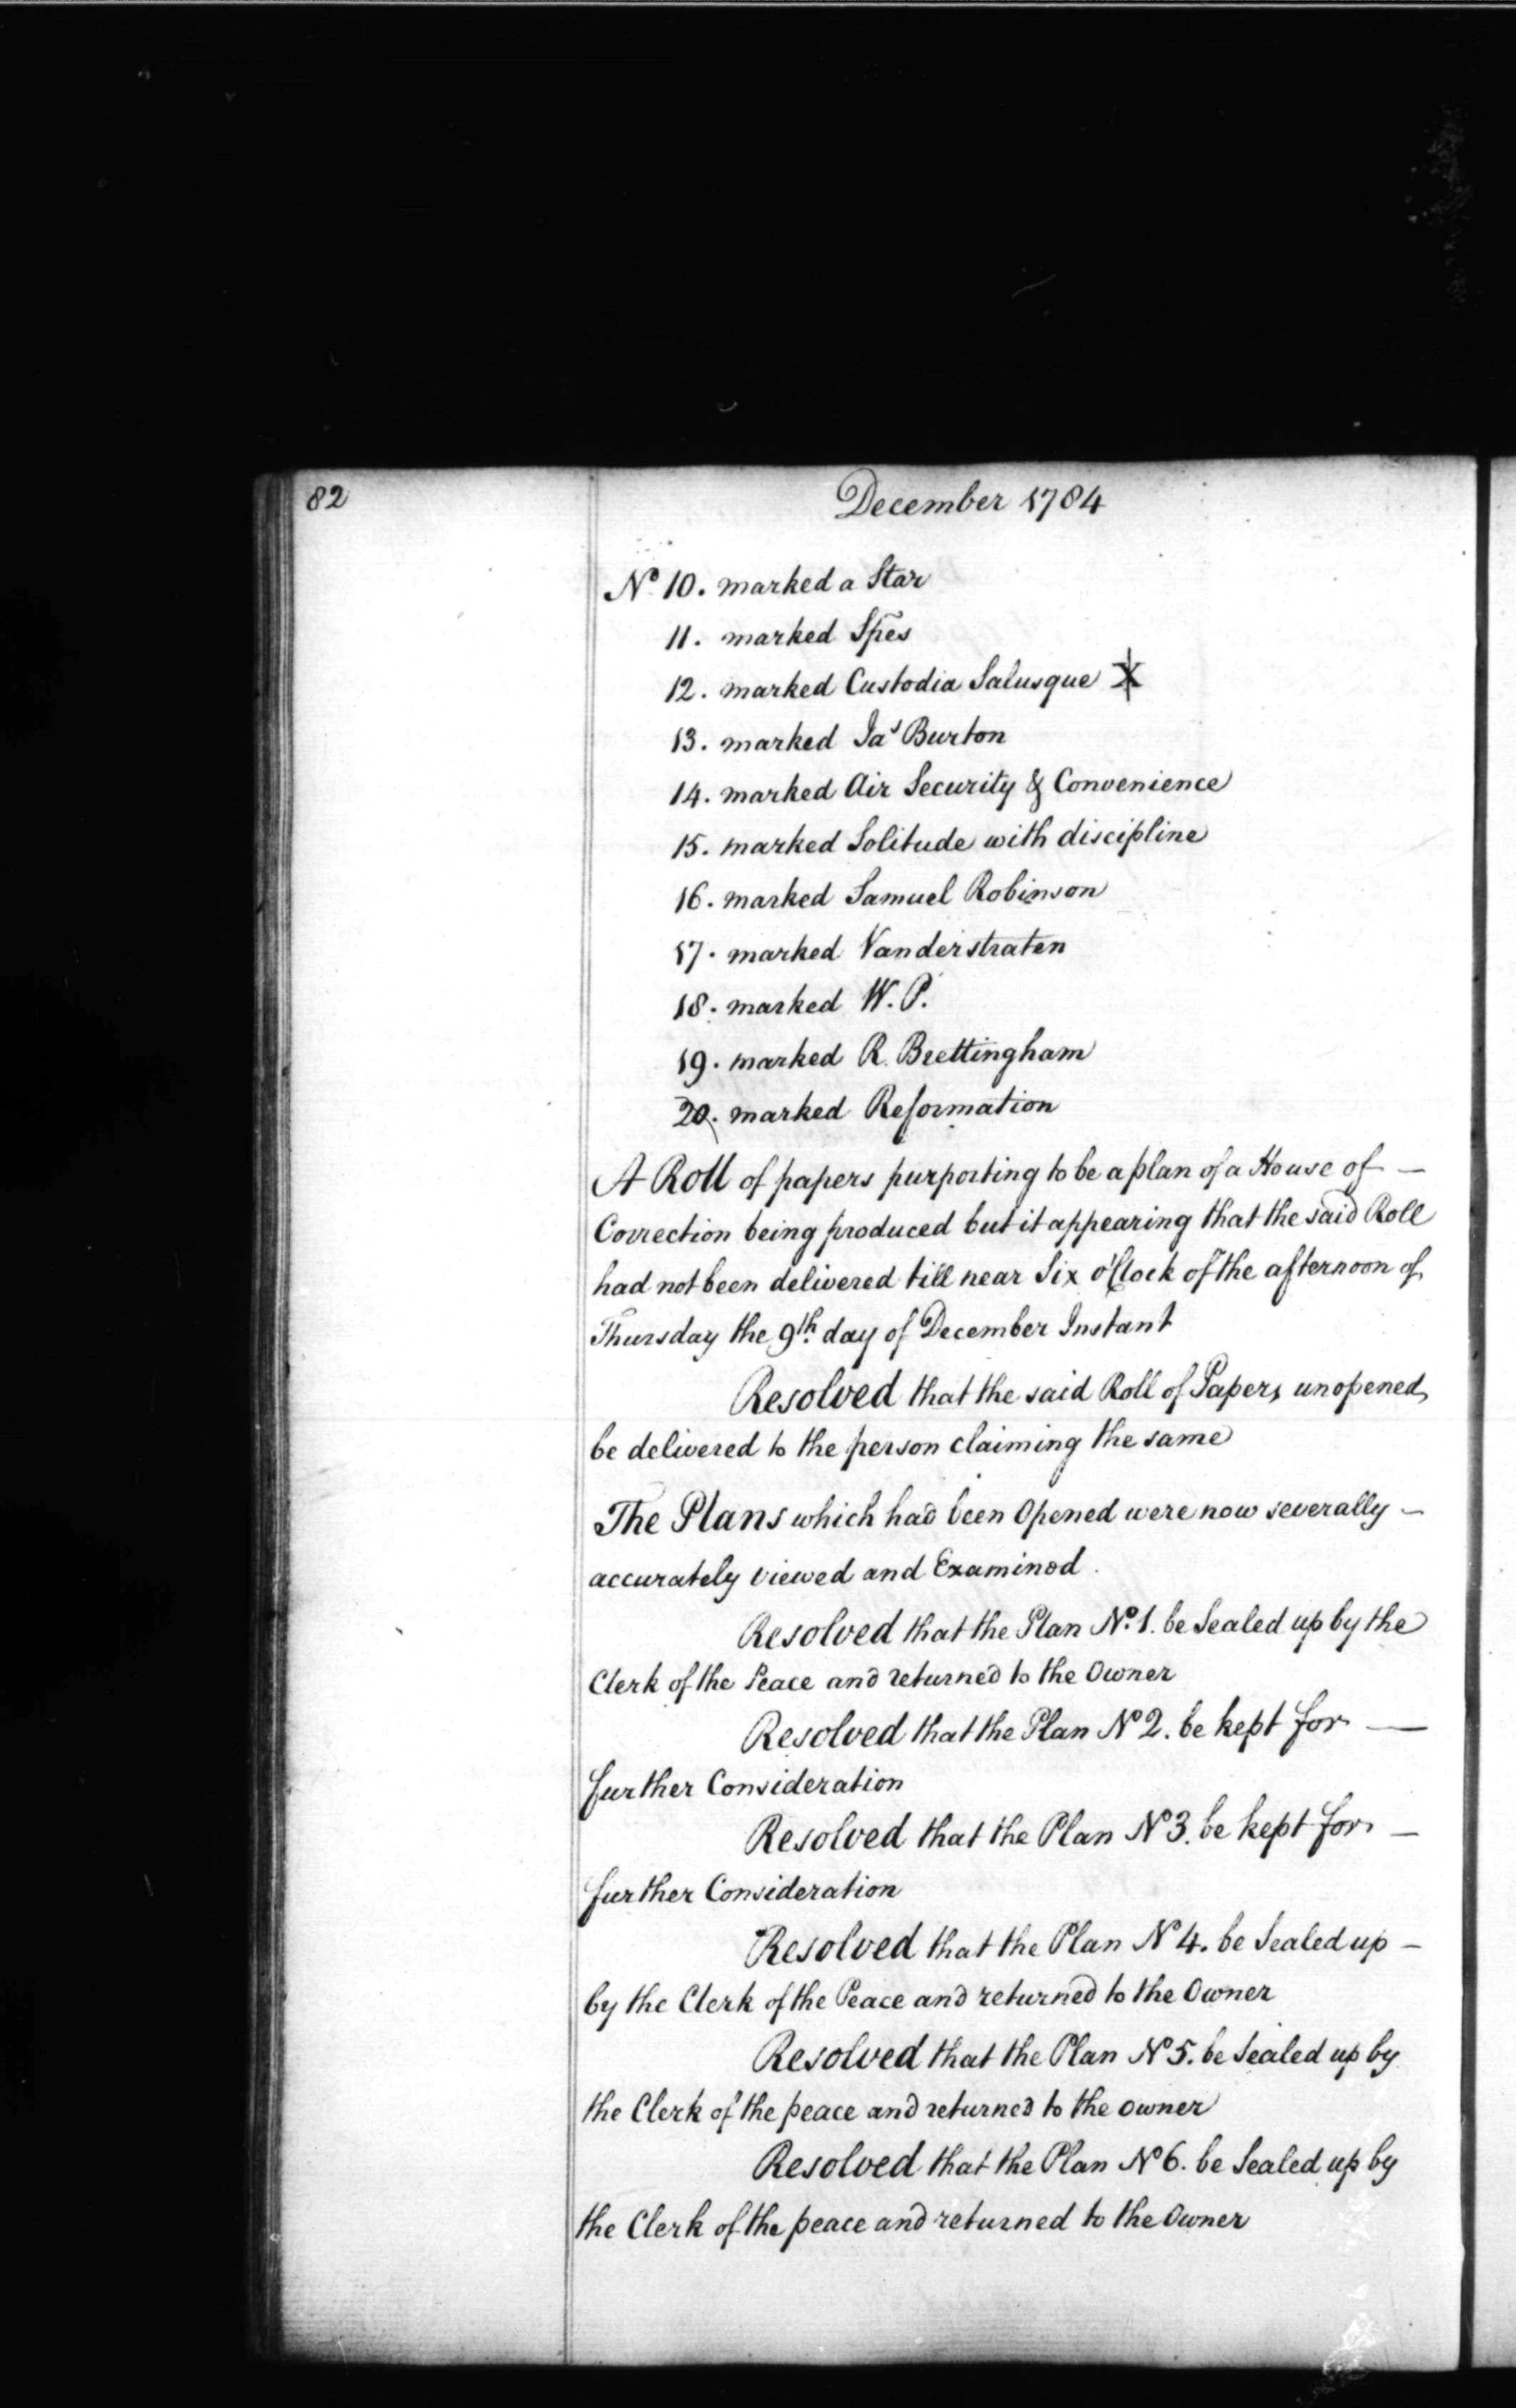 82
December 1784
No 10. marked a Star
11. marked Spes
12. marked Custodia Salusque
13. marked Jas Burton
14. marked Air Security & Convenience
15. marked Solitude with discipline
16. marked Samuel Robinson
17. marked Vanderstraten
18. marked W. P.
19. marked R. Brettingham
20. marked Reformation
A Roll of papers purporting to be a plan of a House of —
Correction being produced but it appearing that the said Roll
had not been delivered till near Six o'Clock of the afternoon of
Thursday the 9th day of December Instant
Resolved that the said Roll of Papers unopened,
be delivered to the person claiming the same
The Plans which had been Opened were now severally —
accurately viewed and Examined.
Resolved that the Plan No. 1. be Sealed up by the
Clerk of the Peace and returned to the Owner
Resolved that the Plan No 2. be kept for —
further Consideration
Resolved that the Plan No 3. be kept for —
further Consideration
Resolved that the Plan No 4. be Sealed up —
by the Clerk of the Peace and returned to the Owner
Resolved that the Plan No 5. be Sealed up by
the Clerk of the peace and returned to the owner
Resolved that the Plan No 6. be Sealed up by
the Clerk of the peace and returned to the Owner